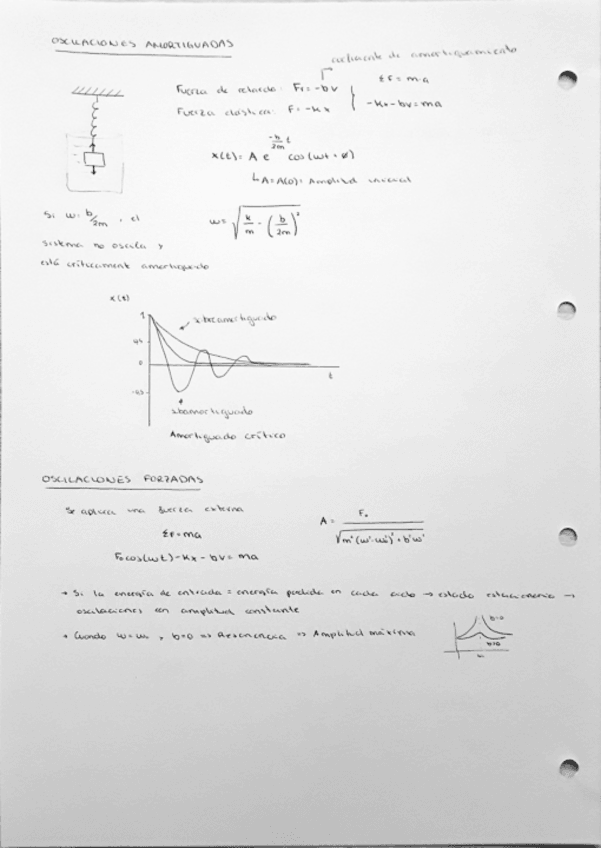 OSCILACIONES AMORTIGUADAS
coeficiente de amortiguamiento
Fuerza de retardo: Fr = -bv
ΣF = m·a
Fuerza elástica: F = -kx
-kx - bv = ma
x(t) = A e^(-b/2m t) cos(ωt + ø)
A = A(0) = Amplitud inicial
Si ω = b/2m, el
ω = √(k/m - (b/2m)²)
sistema no oscila y
está críticamente amortiguado
x(t)
1
sobreamortiguado
0,5
0
t
-0,5
subamortiguado
Amortiguado crítico
OSCILACIONES FORZADAS
Se aplica una fuerza externa
A = F₀ / √
ΣF = ma
F₀cos(ωt) - kx - bv = ma
→ Si la energía de entrada = energía perdida en cada ciclo → estado estacionario →
oscilaciones en amplitud constante
→ Cuando ω = ω₀, b=0 => Resonancia => Amplitud máxima
b=0
b>0